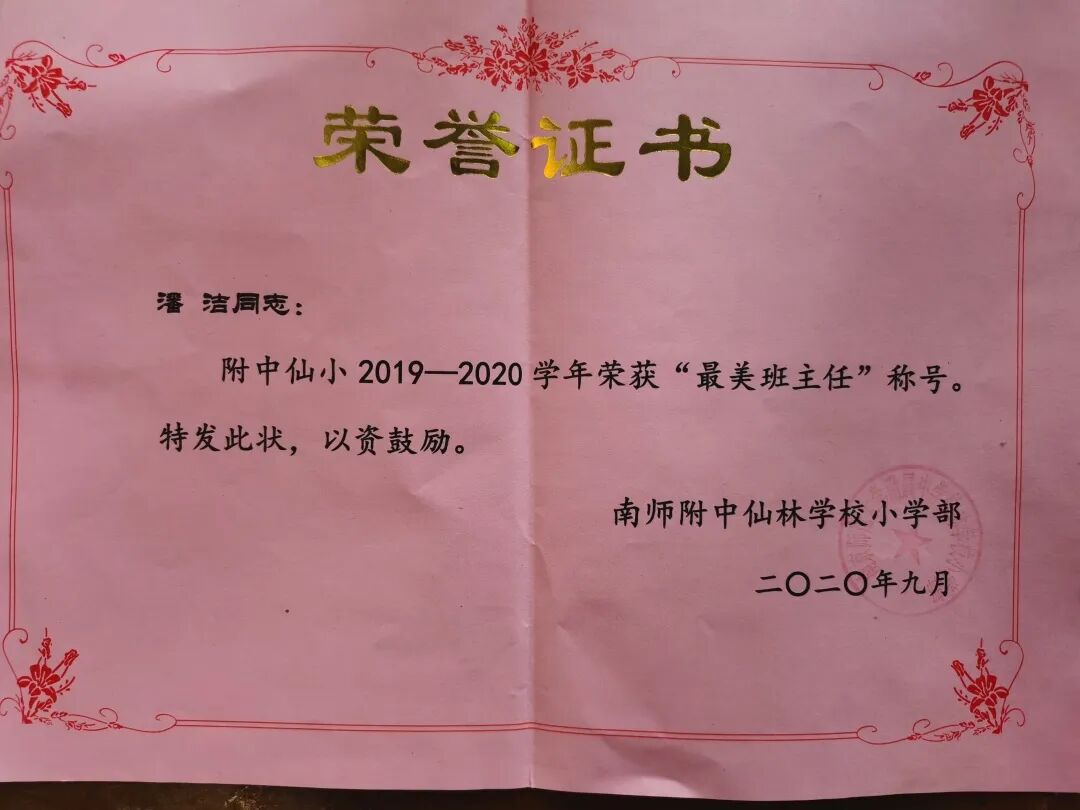 荣誉证书
潘 洁同志：
附中仙小2019—2020学年荣获“最美班主任”称号。
特发此状，以资鼓励。
南师附中仙林学校小学部
二〇二〇年九月